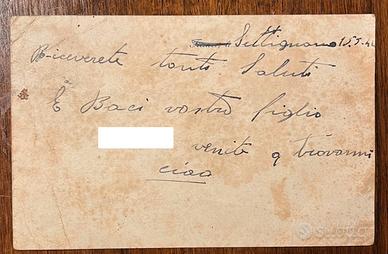 Settignano 15.5.42
Riceverete tanti Saluti
E Baci vostro figlio
venite a trovarmi
ciao